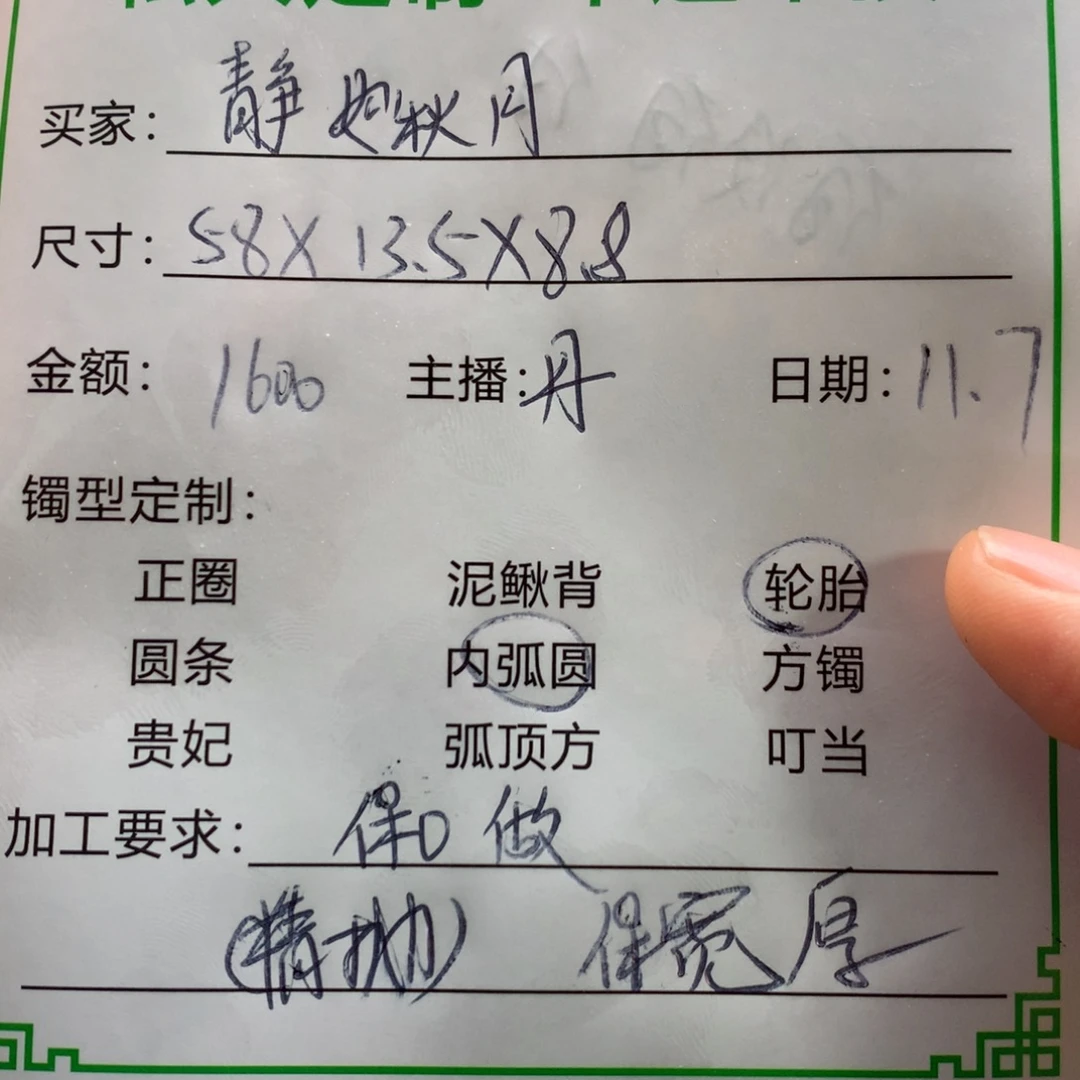 买家: 静如秋月
尺寸: 58X13.5X8.8
金额: 1600 主播: 丹 日期: 11.7
镯型定制:
正圈 泥鳅背 轮胎
圆条 内弧圆 方镯
贵妃 弧顶方 叮当
加工要求: 保口做
(精抛) 保宽厚